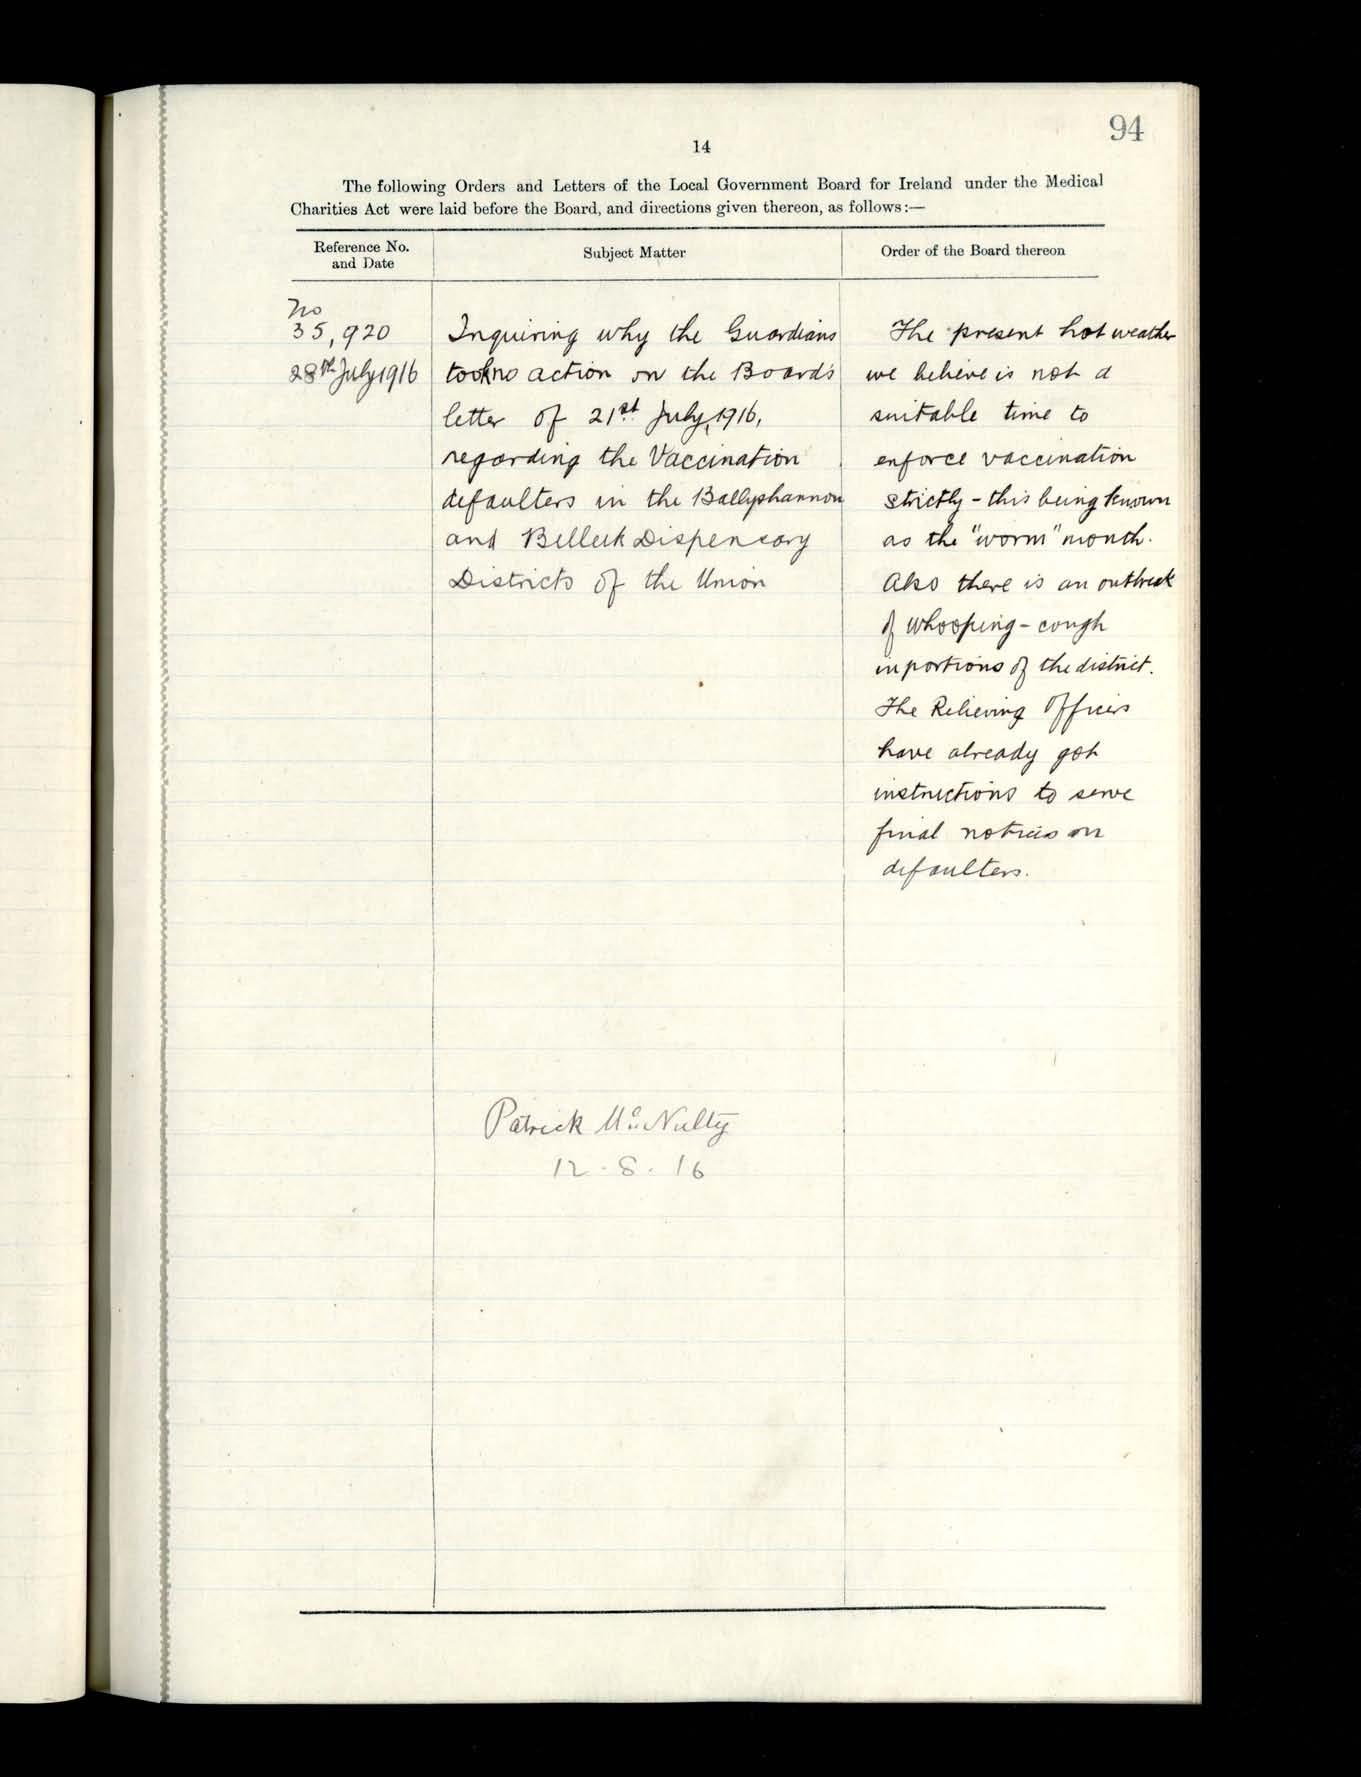 94
14
The following Orders and Letters of the Local Government Board for Ireland under the Medical
Charities Act were laid before the Board, and directions given thereon, as follows:—
Reference No.
and Date
Subject Matter
Order of the Board thereon
No
35,920
28th July 1916
Inquiring why the Guardians
took no action on the Board's
letter of 21st July, 1916,
regarding the Vaccination
defaulters in the Ballyshannon
and Belleek Dispensary
Districts of the Union
The present hot weather
we believe is not a
suitable time to
enforce vaccination
strictly - this being known
as the "worm" month.
Also there is an outbreak
of whooping-cough
in portions of the district.
The Relieving Officers
have already got
instructions to serve
final notices on
defaulters.
Patrick McNulty
12.8.16